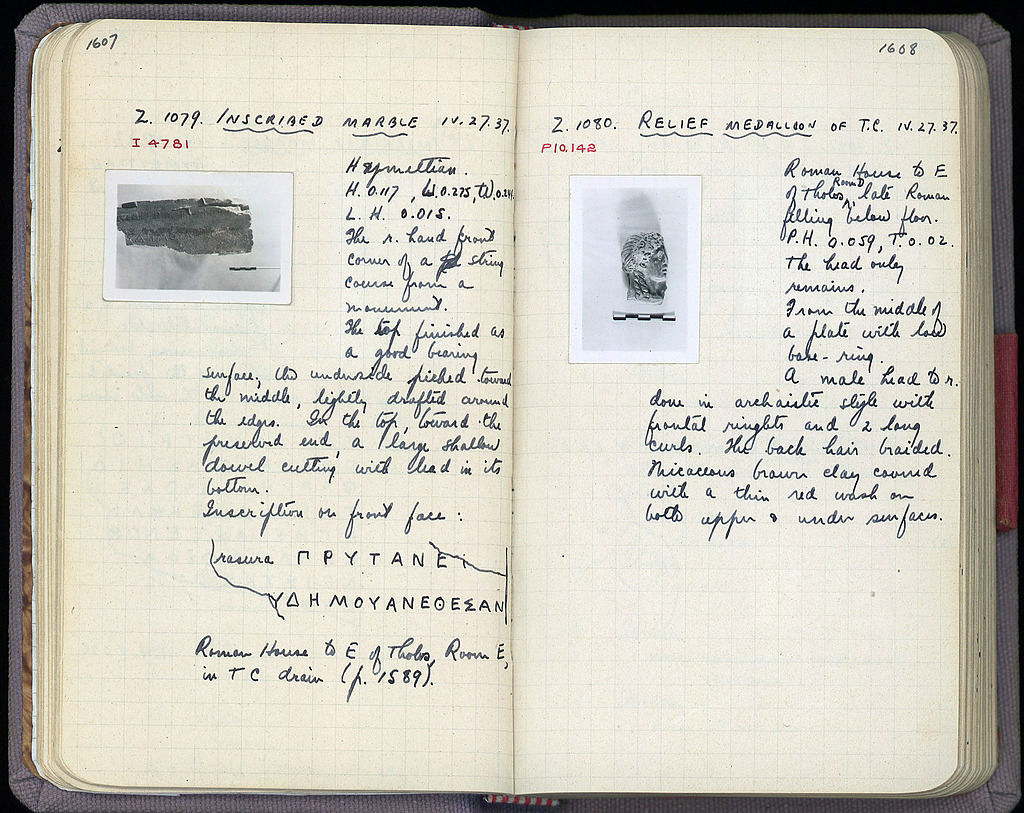 1607
Z. 1079. INSCRIBED MARBLE IV. 27. 37.
I 4781
Hymettian.
H. 0.117, W. 0.275, W. 0.24
L. H. 0.015.
The r. hand front
corner of a string
course from a
monument.
The top finished as
a good bearing
surface, the underside picked toward
the middle, lightly drafted around
the edges. In the top, toward the
preserved end, a large shallow
dowel cutting with lead in its
bottom.
Inscription on front face :
rasura ΠΡΥΤΑΝΕΙ
ΥΔΗΜΟΥΑΝΕΘΕΣΑΝ
Roman House to E of Tholos, Room E,
in TC drain (p. 1589).
1608
Z. 1080. RELIEF MEDALLION OF T.C. IV. 27. 37.
P10,142
Roman House to E
of Tholos, Room D, late Roman
filling below floor.
P.H. 0.059, T. 0.02.
The head only
remains.
From the middle of
a plate with low
base-ring.
A male head to r.
done in archaistic style with
frontal ringlets and 2 long
curls. The back hair braided.
Micaceous brown clay covered
with a thin red wash on
both upper & under surfaces.